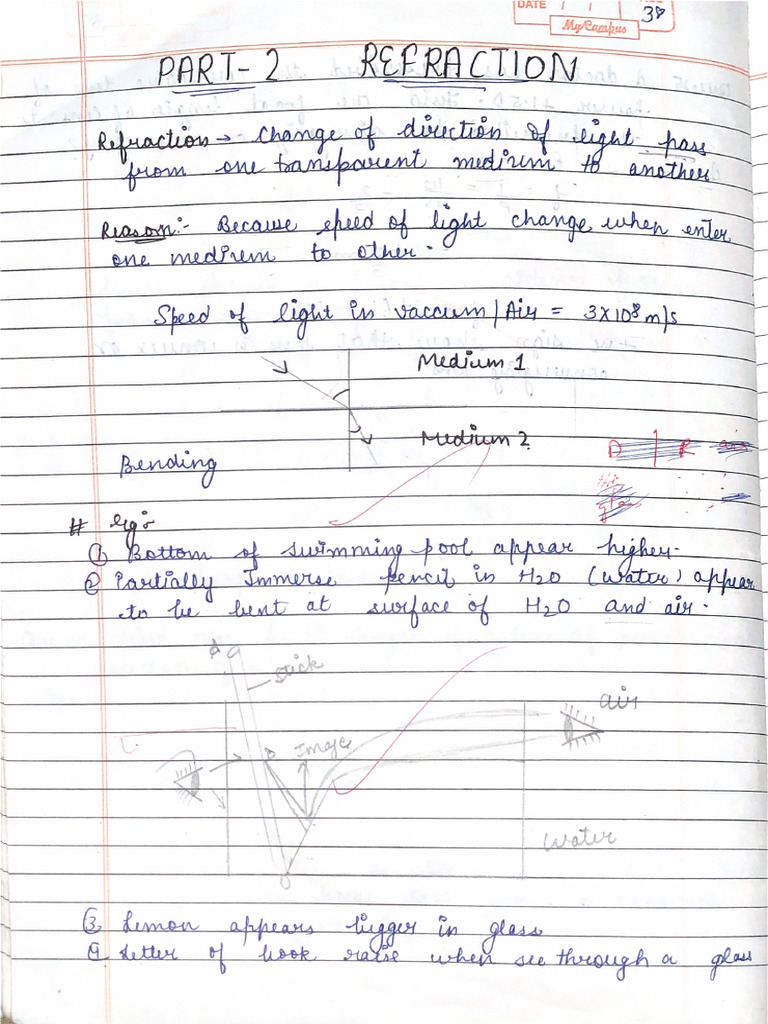 DATE
38
MyCampus
PART-2 REFRACTION
Refraction → Change of direction of light pass
from one transparent medium to another
Reason:- Because speed of light change when enter
one medium to other.
Speed of light in vaccum/Air = 3×10⁸ m/s
Medium 1
Medium 2
D R air
Bending
# Eg:-
① Bottom of swimming pool appear higher.
② Partially Immerse pencil in H2O (water) appear
to be bent at surface of H2O and air.
A
stick
air
B Image
Water
③ Lemon appears bigger in glass
④ Letter of book raise when see through a glass